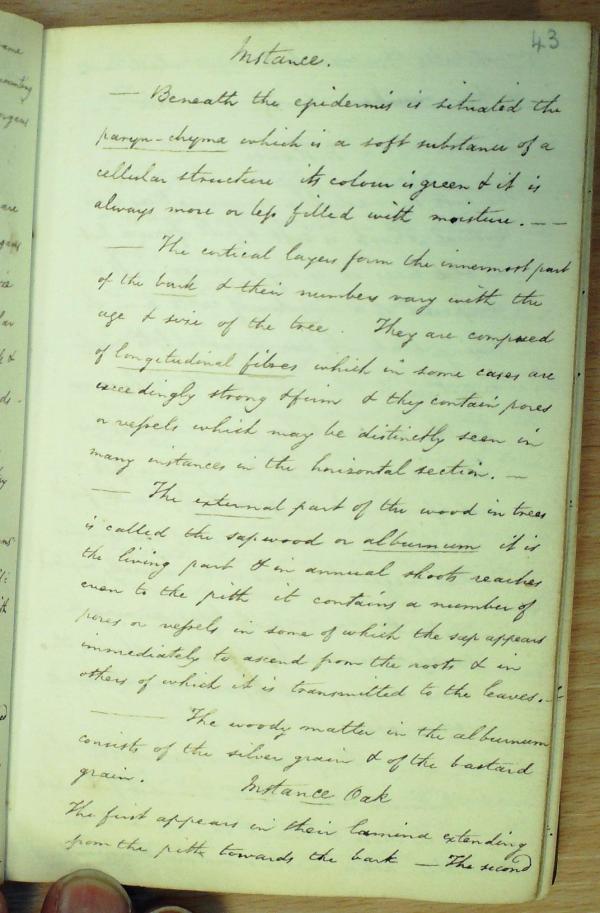 43
Instance.
— Beneath the epidermis is situated the
paryn-chyma which is a soft substance of a
cellular structure its colour is green & it is
always more or less filled with moisture. — —
— The cortical layers form the innermost part
of the bark & their numbers vary with the
age & size of the tree. They are composed
of longitudinal fibres which in some cases are
exceedingly strong & firm & they contain pores
or vessels which may be distinctly seen in
many instances in the horizontal section. —
— The external part of the wood in trees
is called the sapwood or alburnum it is
the living part & in annual shoots reaches
even to the pith it contains a number of
pores or vessels in some of which the sap appears
immediately to ascend from the roots & in
others of which it is transmitted to the leaves. —
— The woody matter in the alburnum
consists of the silver grain & of the bastard
grain. Instance Oak
The first appears in their lamina extending
from the pith towards the bark — The second